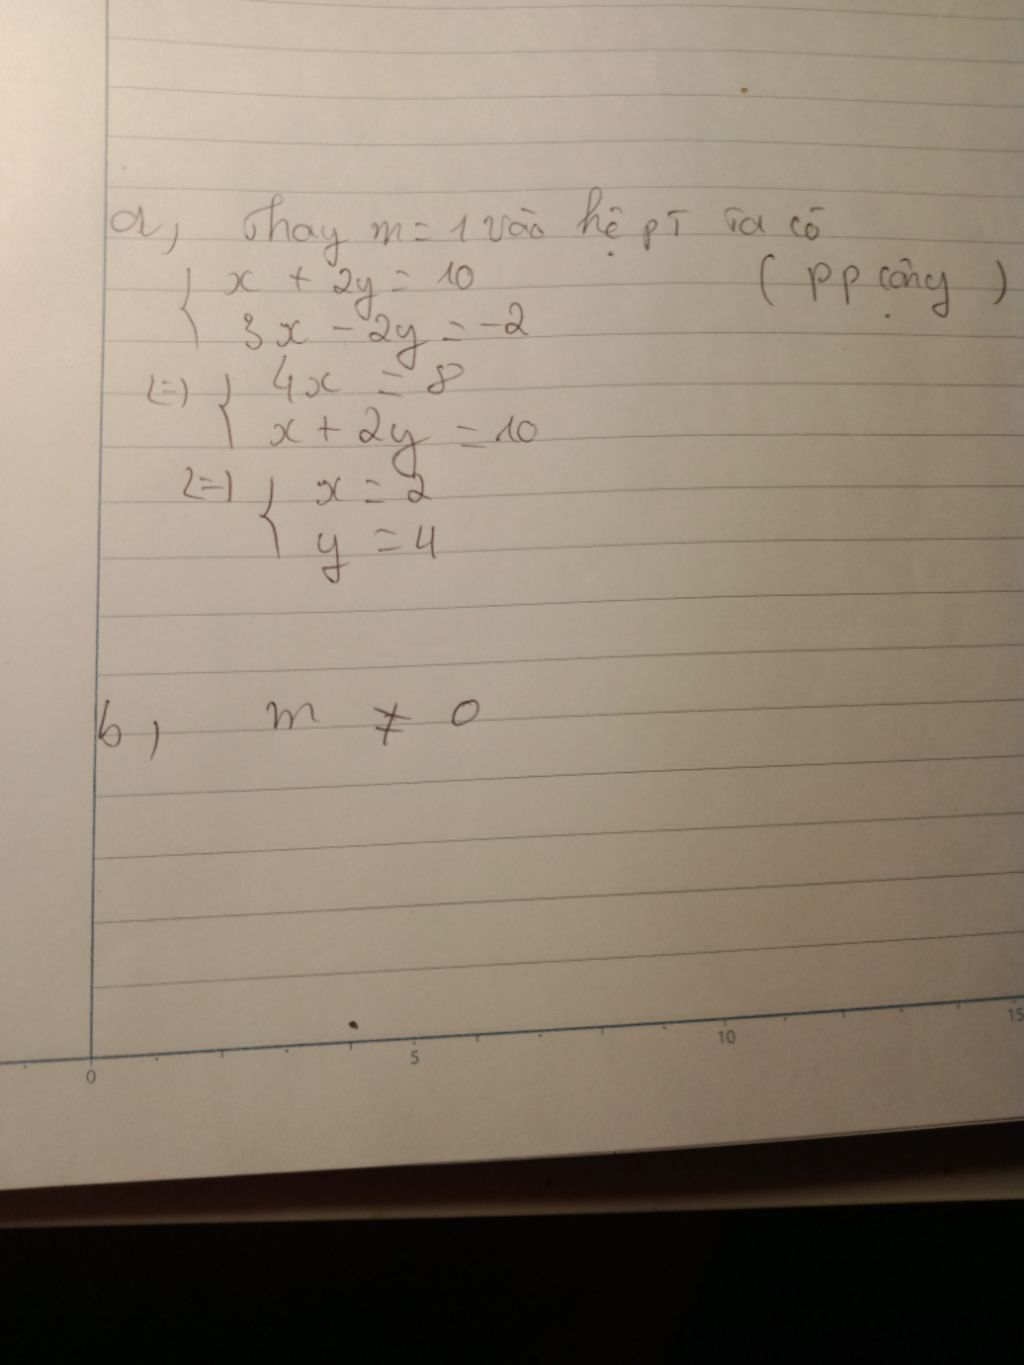 a, Thay m = 1 vào hệ pT ta có
{ x + 2y = 10 ( pp cộng )
3x - 2y = -2
<=> { 4x = 8
x + 2y = 10
<=> { x = 2
y = 4
b, m ≠ 0
0 5 10 15